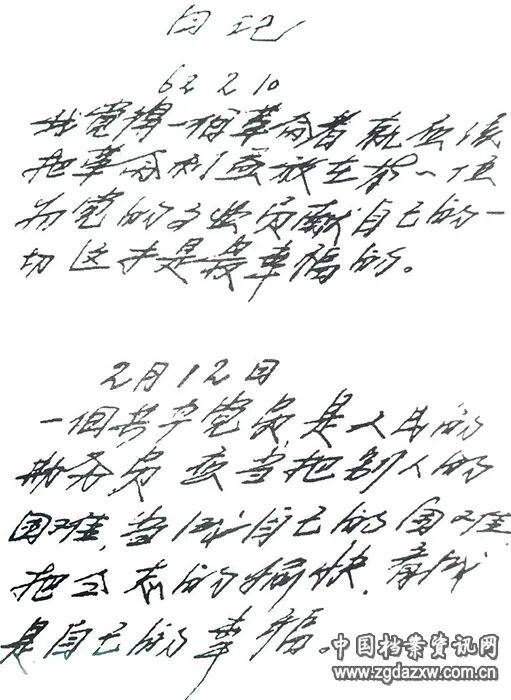 日记
62 2 10
我觉得一个革命者就应该
把革命利益放在第一位
为党的事业贡献自己的一
切这才是最幸福的。
2月12日
一个共产党员是人民的
勤务员,应当把别人的
困难,当成自己的困难
把同志的愉快,看成
是自己的幸福。
中国档案资讯网
www.zgdazxw.com.cn